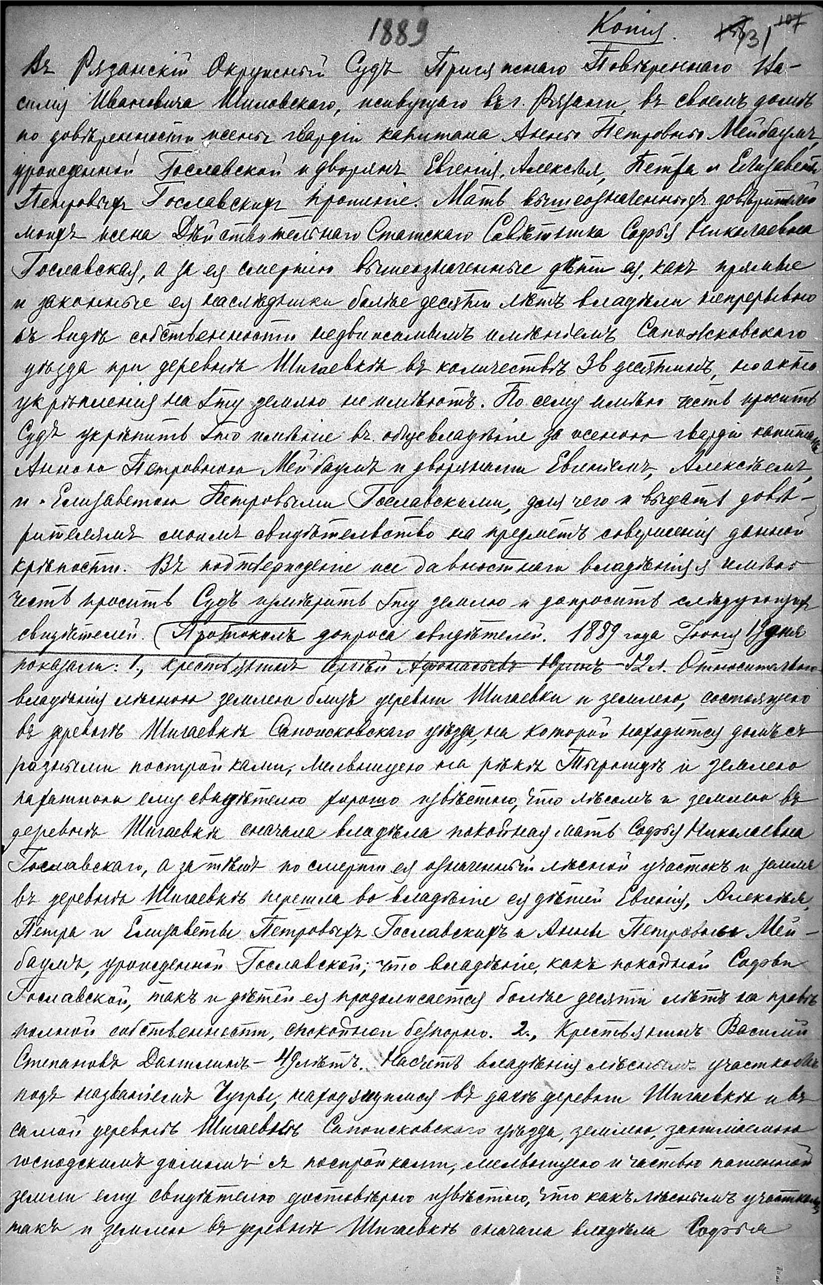 1889 Копія. 131 107
Въ Рязанскій Окружный Судъ Присяжнаго Повѣреннаго Ва-
силія Ивановича Шиловскаго, живущаго въ г. Рязани, въ своемъ домѣ
по довѣренности жены гвардіи капитана Анны Петровны Мейбаумъ,
урожденной Гославской и дворянъ Евгенія, Алексѣя, Петра и Елизаветы
Петровыхъ Гославскихъ прошеніе. Мать вышеозначенныхъ довѣрителей
моихъ жена Дѣйствительнаго Статскаго Совѣтника Софья Николаевна
Гославская, а за ея смертію вышеозначенные дѣти ея, какъ прямые
и законные ея наслѣдники болѣе десяти лѣтъ владѣли непрерывно
въ видѣ собственности недвижимымъ имѣніемъ Сапожковскаго
уѣзда при деревнѣ Шигаевкѣ въ количествѣ десятинъ, но акта
укрѣпленія на эту землю не имѣютъ. По сему имѣю честь просить
Судъ укрѣпить это имѣніе въ общее владѣніе за женою гвардіи капитана
Анною Петровною Мейбаумъ и дворянами Евгеніемъ, Алексѣемъ,
и Елизаветою Петровыми Гославскими, для чего и выдать довѣ-
рителямъ моимъ свидѣтельство на предметъ совершенія данной
крѣпости. Въ подтвержденіе же давностнаго владѣнія я имѣю
честь просить Судъ измѣрить эту землю и допросить слѣдующихъ
свидѣтелей. Протоколъ допроса свидѣтелей. 1889 года Іюня 19 дня
показали: 1., крестьянинъ Сергѣй Афонасьевъ Юринъ - 52 л. Относительно
владѣнія лѣсною землею близъ деревни Шигаевки и землею, состоящею
въ деревнѣ Шигаевкѣ Сапожковскаго уѣзда, на которой находится домъ съ
разными постройками, мельницею на рѣкѣ Тырницѣ и землею
пахатною ему свидѣтелю хорошо извѣстно, что лѣсомъ и землею въ
деревнѣ Шигаевкѣ сначала владѣла покойная мать Софья Николаевна
Гославскаго, а затѣмъ по смерти ея означенный лѣсной участокъ и земля
въ деревнѣ Шигаевкѣ перешла во владѣніе ея дѣтей Евгенія, Алексѣя,
Петра и Елизаветы Петровыхъ Гославскихъ и Анны Петровны Мей-
баумъ, урожденной Гославской; что владѣніе, какъ покойной Софьи
Гославской, такъ и дѣтей ея продолжается болѣе десяти лѣтъ на правѣ
полной собственности, спокойно и безпорно. 2., Крестьянинъ Василій
Степановъ Данилинъ - 42 лѣтъ. Насчетъ владѣнія лѣснымъ участкомъ
подъ названіемъ находящимся въ дачѣ деревни Шигаевки и въ
самой деревнѣ Шигаевкѣ Сапожковскаго уѣзда, землею, занимаемою
господскимъ домомъ и постройками, мельницею и частью пашенной
земли ему свидѣтелю достовѣрно извѣстно, что какъ лѣснымъ участкомъ,
такъ и землею въ деревнѣ Шигаевкѣ сначала владѣла Софья